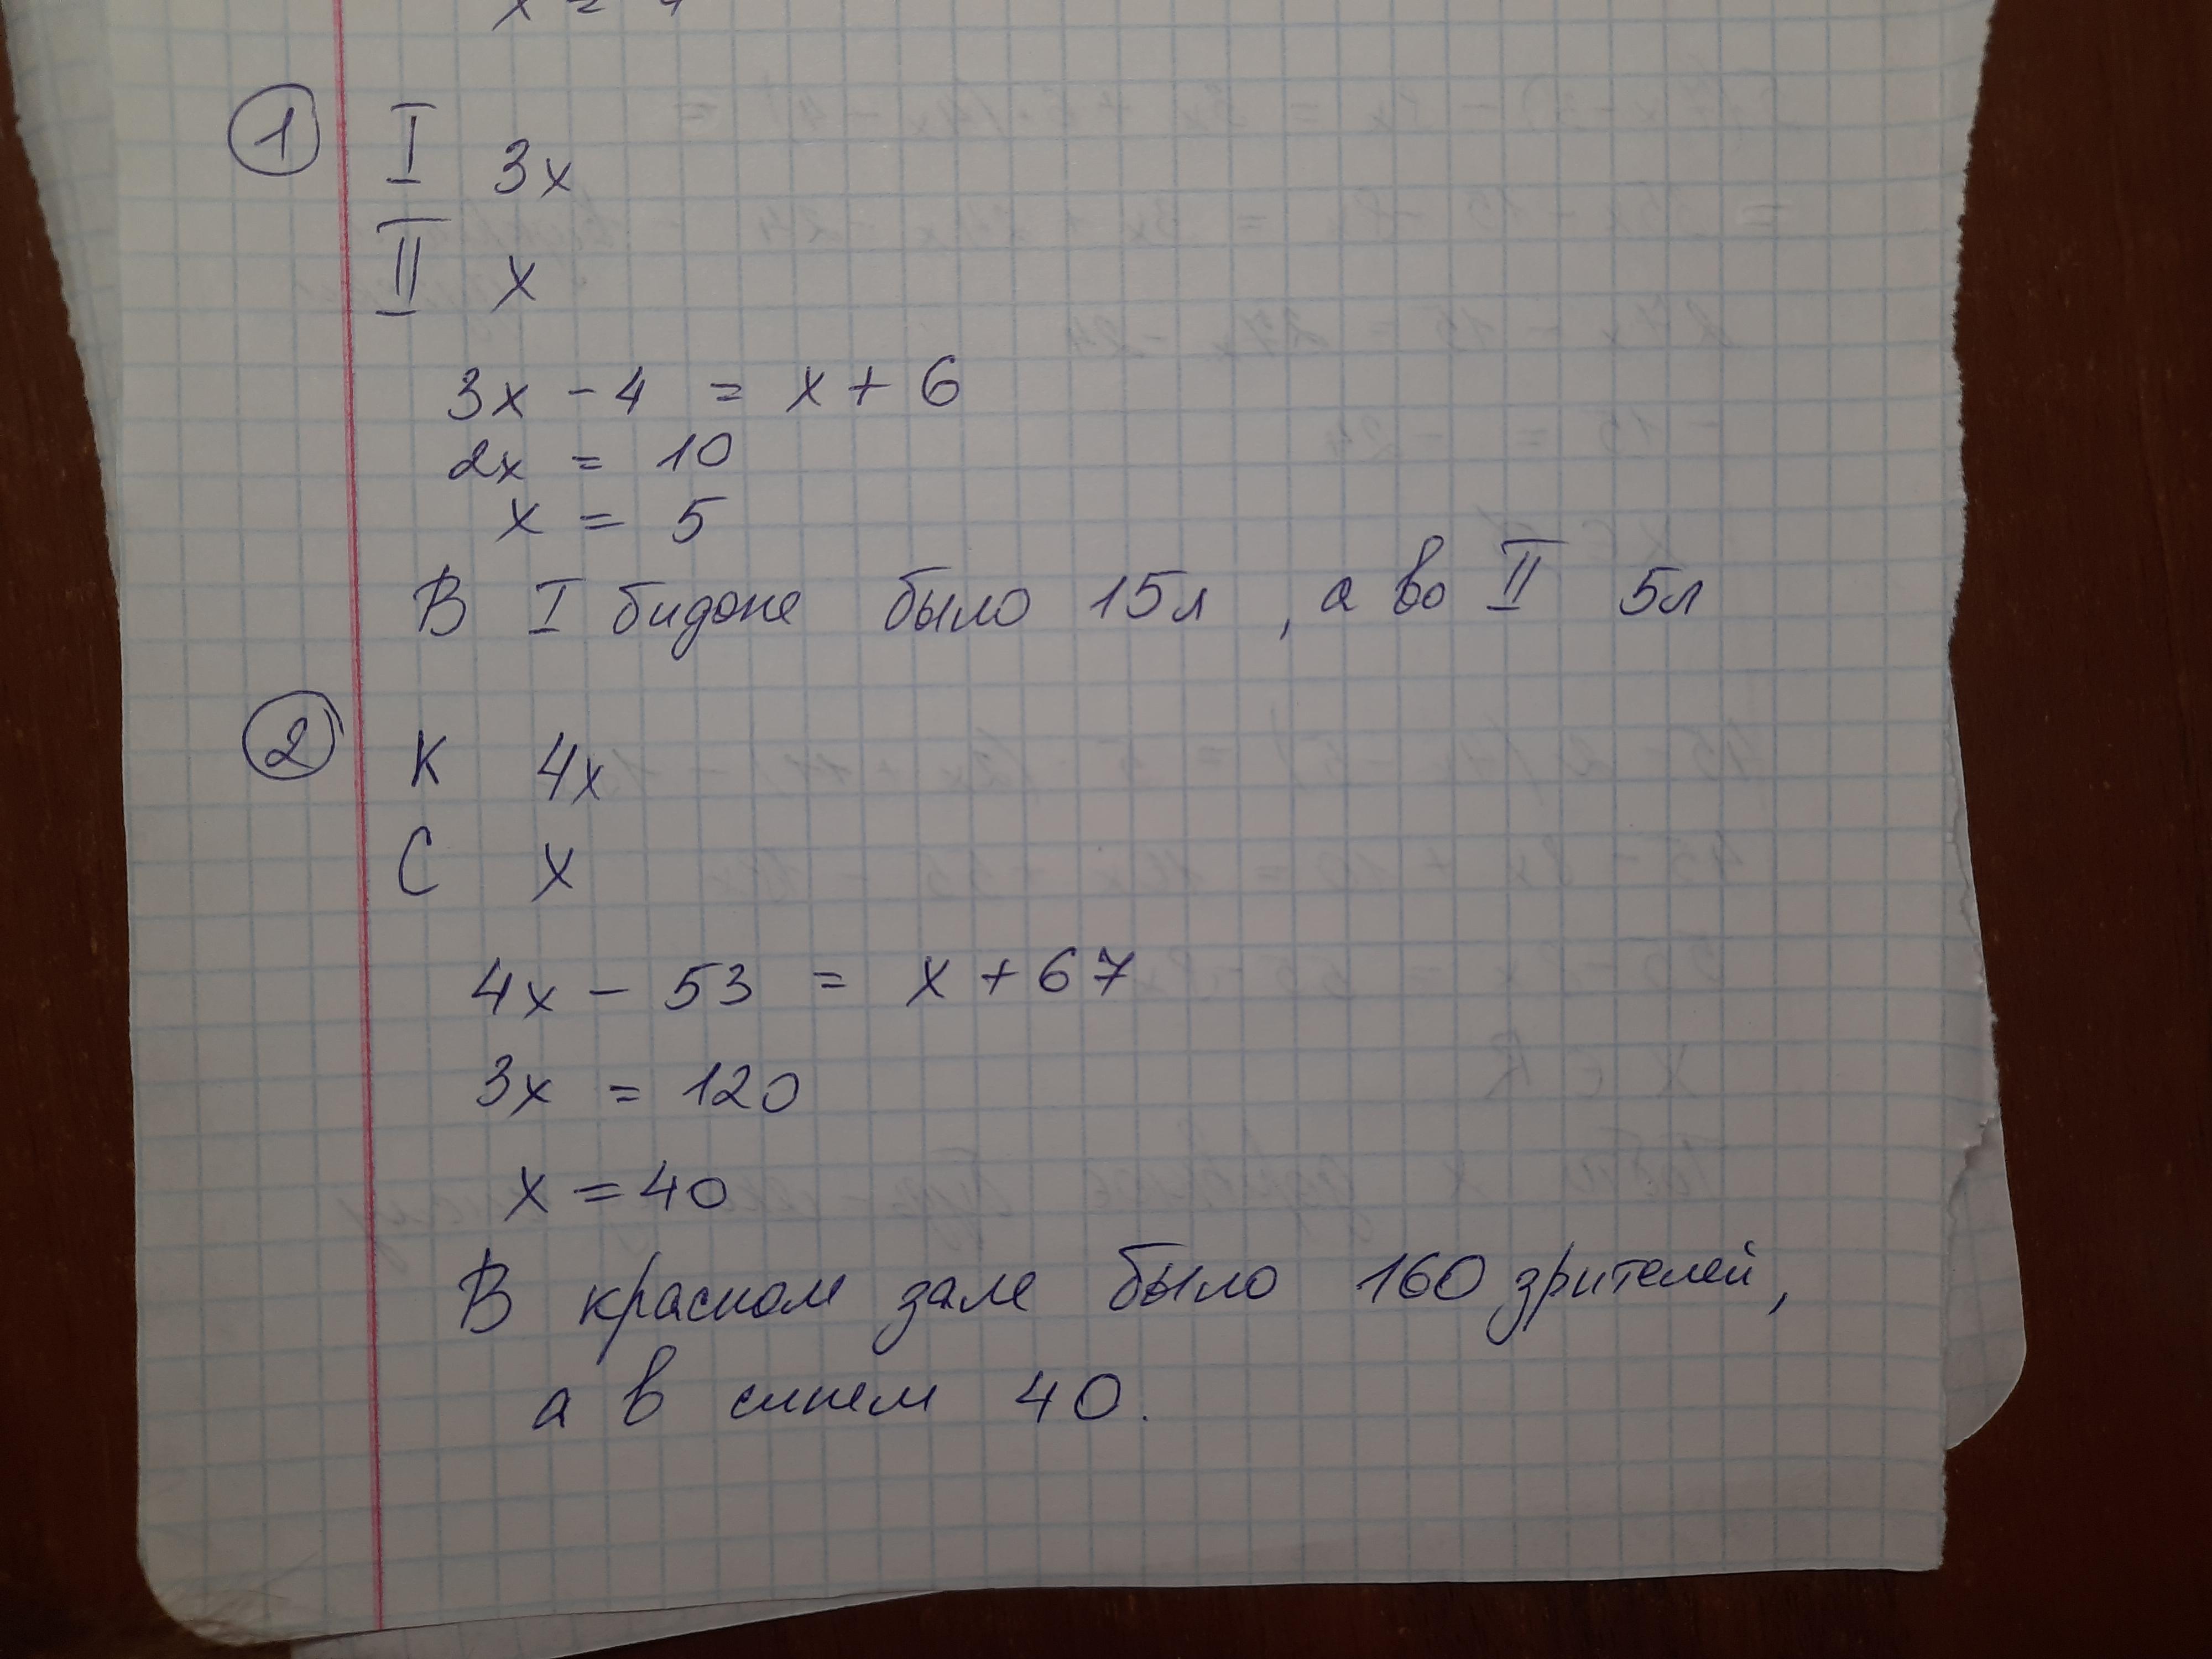 1 I 3x
II x
3x - 4 = x + 6
2x = 10
x = 5
В I бидоне было 15л, а во II 5л
2 К 4x
С x
4x - 53 = x + 67
3x = 120
x = 40
В красном зале было 160 зрителей,
а в синем 40.